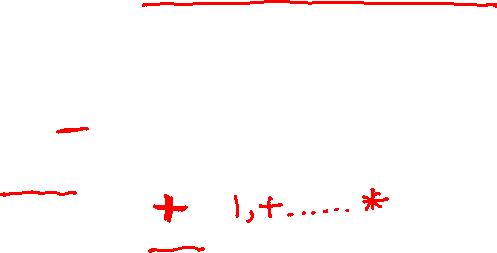 -
+ 1,+......*